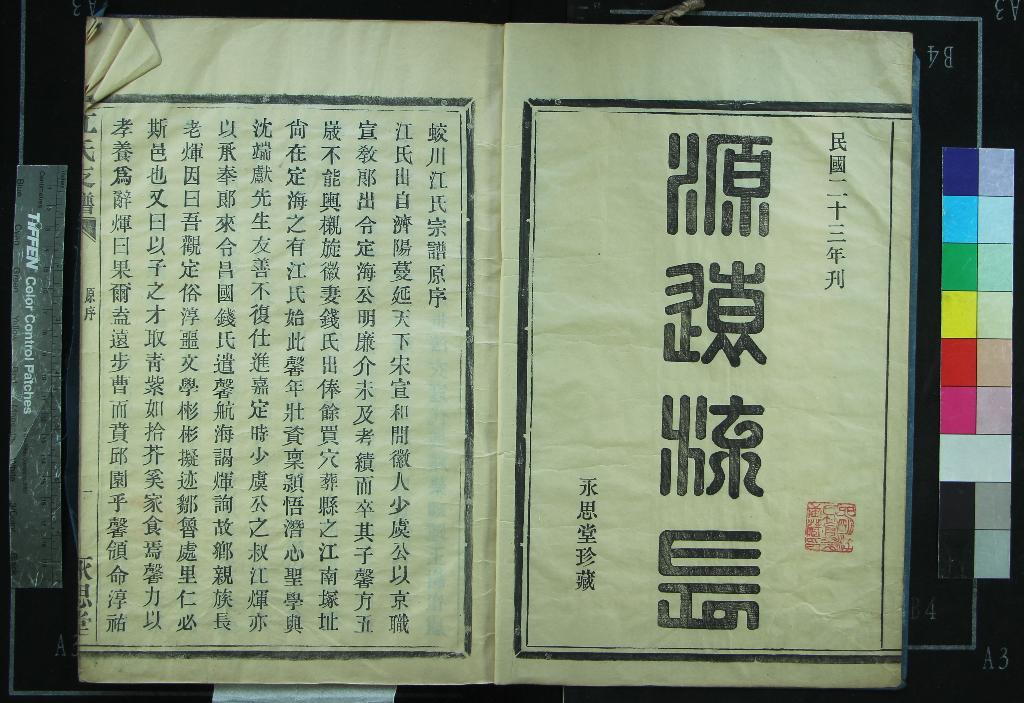 民國二十三年刊
源遠流長
永思堂珍藏
蛟川江氏宗譜原序
江氏出自濟陽蔓延天下宋宣和間徽人少虞公以京職
宣教郎出令定海公明廉介未及考績而卒其子馨方五
歲不能輿櫬旋徽妻錢氏出俸餘買穴葬縣之江南塚址
尙在定海之有江氏始此馨年壯資稟潁悟潛心聖學與
沈端獻先生友善不復仕進嘉定時少虞公之叔江煇亦
以承奉郎來令昌國錢氏遣馨航海謁煇詢故鄉親族長
老煇因曰吾觀定俗淳噩文學彬彬擬迹鄒魯處里仁必
斯邑也又曰以子之才取靑紫如拾芥奚家食焉馨力以
孝養爲辭煇曰果爾盍遠步曹而賁邱園乎馨領命淳祐
江氏支譜
原序
一
永思堂
TIFFEN Color Control Patches
B4
A3
B4
A3